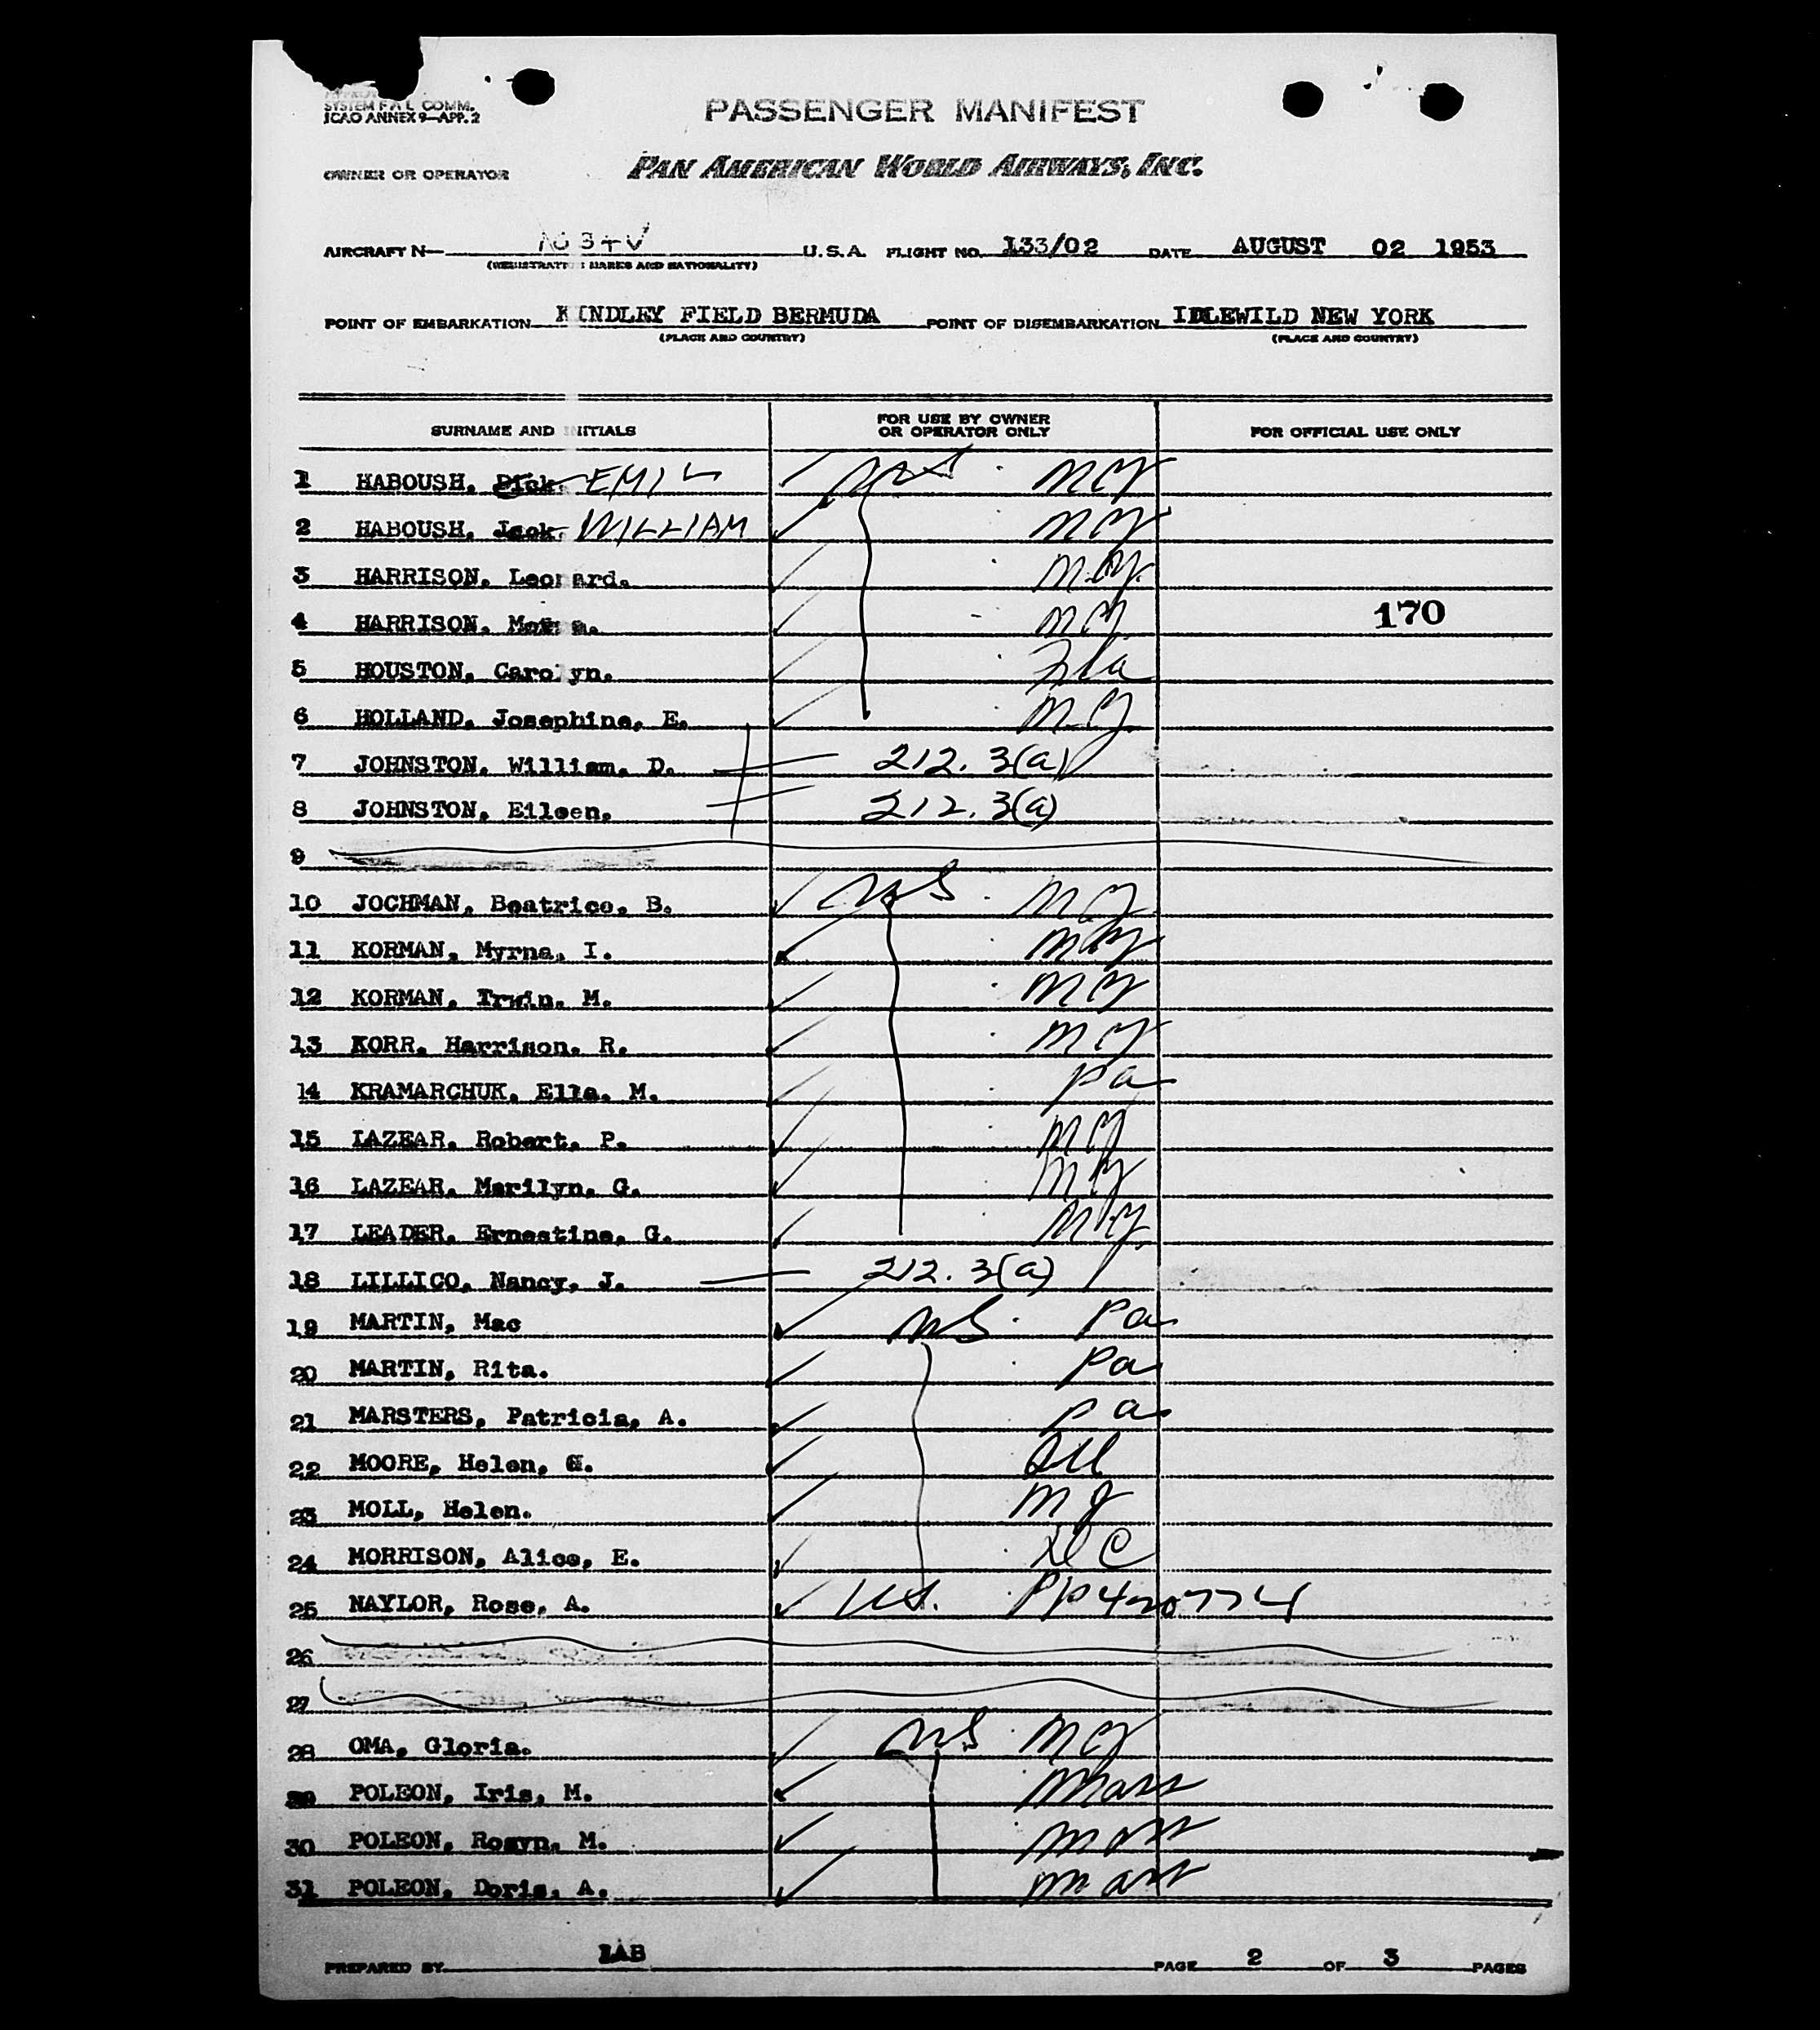 SYSTEM F A L COMM.
ICAO ANNEX 9—APP. 2
PASSENGER MANIFEST
OWNER OR OPERATOR PAN AMERICAN WORLD AIRWAYS, INC.
AIRCRAFT N— U.S.A. FLIGHT NO. 133/02 DATE AUGUST 02 1953
(REGISTRATION MARKS AND NATIONALITY)
POINT OF EMBARKATION KINDLEY FIELD BERMUDA POINT OF DISEMBARKATION IDLEWILD NEW YORK
(PLACE AND COUNTRY) (PLACE AND COUNTRY)
SURNAME AND INITIALS FOR USE BY OWNER OR OPERATOR ONLY FOR OFFICIAL USE ONLY
1 HABOUSH, Dick. EMIL US NY
2 HABOUSH, Jack. WILLIAM NY
3 HARRISON, Leonard. NY
4 HARRISON, NY 170
5 HOUSTON, Carolyn. Fla
6 HOLLAND, Josephine, E. NY
7 JOHNSTON, William, D. 212.3(a)
8 JOHNSTON, Eileen. 212.3(a)
9
10 JOCHMAN, Beatrice, B. US NY
11 KORMAN, Myrna, I. NY
12 KORMAN, Irwin, M. NY
13 KORR, Harrison, R. NY
14 KRAMARCHUK, Ella, M. Pa
15 LAZEAR, Robert, P. NY
16 LAZEAR, Marilyn, G. NY
17 LEADER, Ernestine, G. NY
18 LILLICO, Nancy, J. 212.3(a)
19 MARTIN, Mac US Pa
20 MARTIN, Rita. Pa
21 MARSTERS, Patricia, A. Pa
22 MOORE, Helen, G. Ill
23 MOLL, Helen. NJ
24 MORRISON, Alice, E. DC
25 NAYLOR, Rose, A. US. PP420774
26
27
28 OMA, Gloria. US NY
29 POLEON, Iris, M. Mass
30 POLEON, Rosyn, M. Mass
31 POLEON, Doris, A. Mass
PREPARED BY IAB PAGE 2 OF 3 PAGES